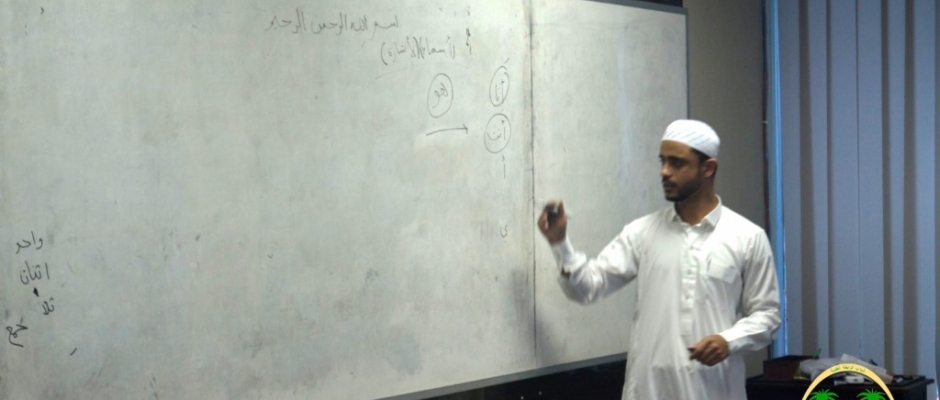 بسم الله الرحمن الرحيم
(أسماء الإشارة)
أنا
هو
أنت
أ
ى
واحد
اثنان
ثلا
جمع